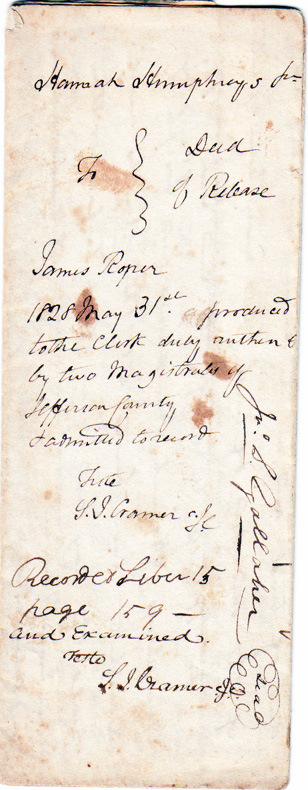 Hannah Humphreys
To } Deed
of Release
James Roper
1828 May 31st. produced
to the Clerk duly authen
by two Magistrates of
Jefferson County
& admitted to record
Teste
S. J. Cramer
Recorded Liber 15
page 159 —
and Examined.
Teste
S. J. Cramer
Jno. S. Gallaher
Deed